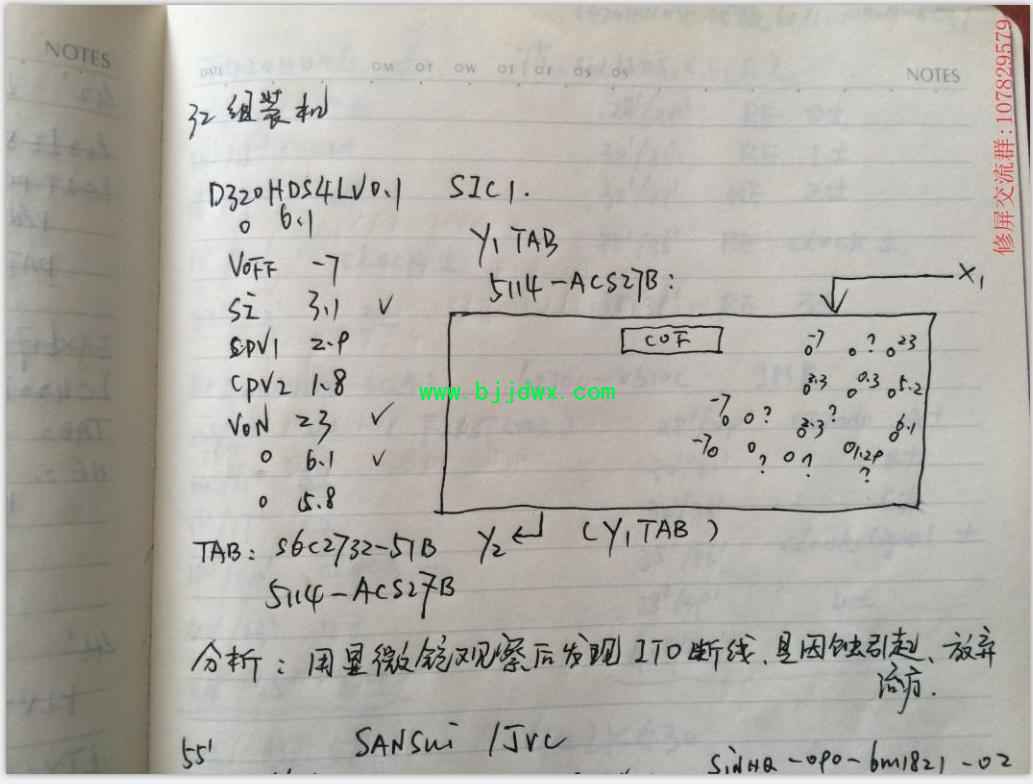 NOTES
DATE
NOTES
修屏交流群:107829579
32组装机
D320HDS4LV0.1 SIC1.
0 6.1
Y1 TAB
VOFF -7
5114-ACS27B:
X1
SI 3.1 ✓
COF
-7 ? 23
2.9
CPV2 1.8
3.3 0.3 5.2
www.bjjdwx.com
VON 23 ✓
-7 ? 3.3 ? 6.1
0 6.1 ✓
-7 ? ? 1.29 ?
0 5.8
Y2 (Y1 TAB)
TAB: S6C2732-51B
5114-ACS27B
分析:用显微镜观察后发现ITO断线、是因蚀引起、放弃
治疗.
55' SANSui /JVC